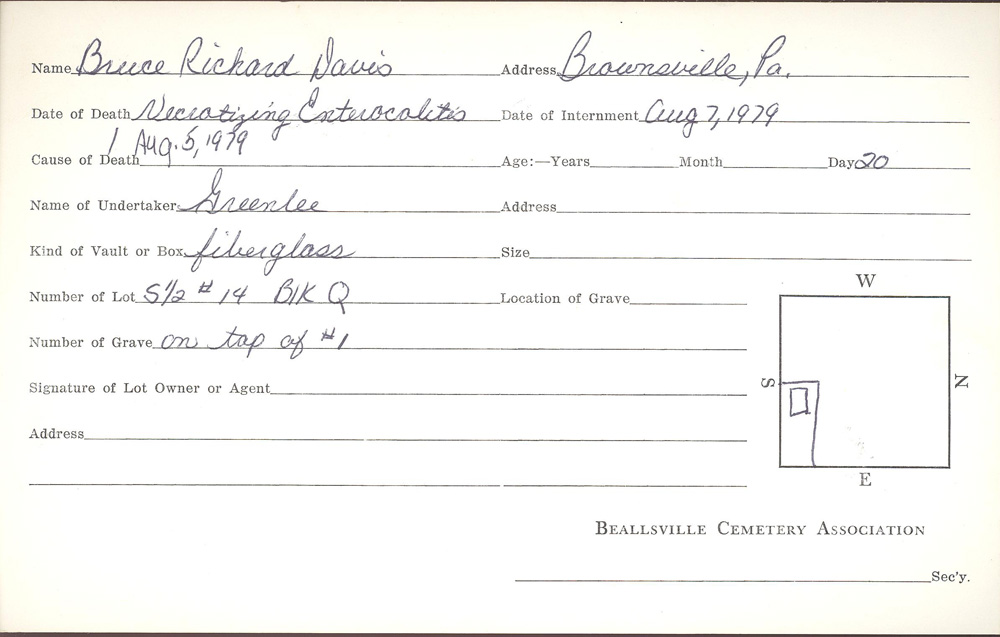 Name Bruce Richard Davis Address Brownsville, Pa.
Date of Death Necrotizing Enterocolitis Date of Internment Aug 7, 1979
Cause of Death / Aug. 5, 1979 Age:—Years Month Day 20
Name of Undertaker Greenlee Address
Kind of Vault or Box fiberglass Size
Number of Lot S½ # 14 Blk Q Location of Grave
Number of Grave on top of #1
Signature of Lot Owner or Agent
Address
W
S
N
E
BEALLSVILLE CEMETERY ASSOCIATION
Sec'y.